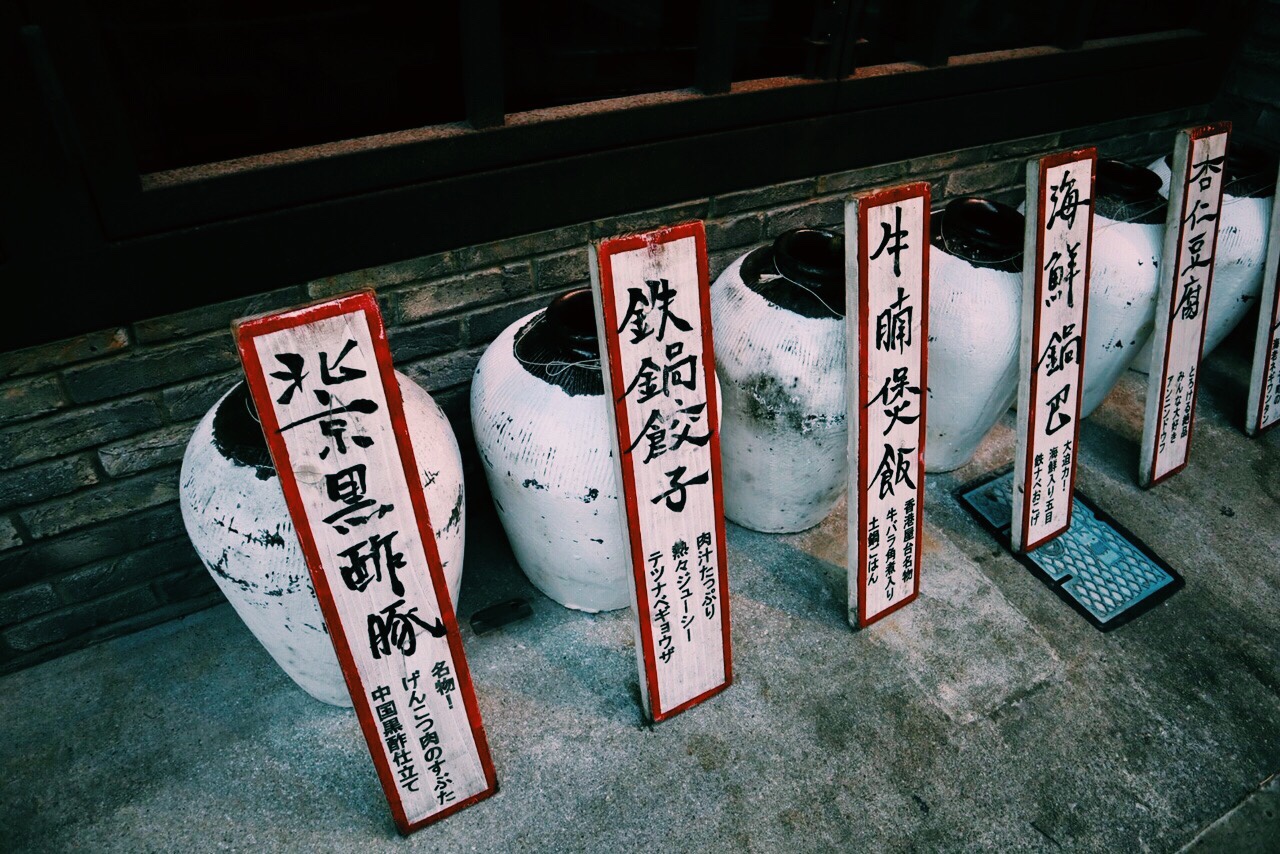 北京黒酢豚
名物!
げんこつ肉のすぶた
中国黒酢仕立て
鉄鍋餃子
肉汁たっぷり
熱々ジューシー
テツナベギョウザ
牛腩煲飯
香港屋台名物
牛バラ角煮入り
土鍋ごはん
海鮮鍋巴
大迫力ー
海鮮入り五目
鉄ナベおこげ
杏仁豆腐
とろける絶品
みんな大好き
アンニンドウフ